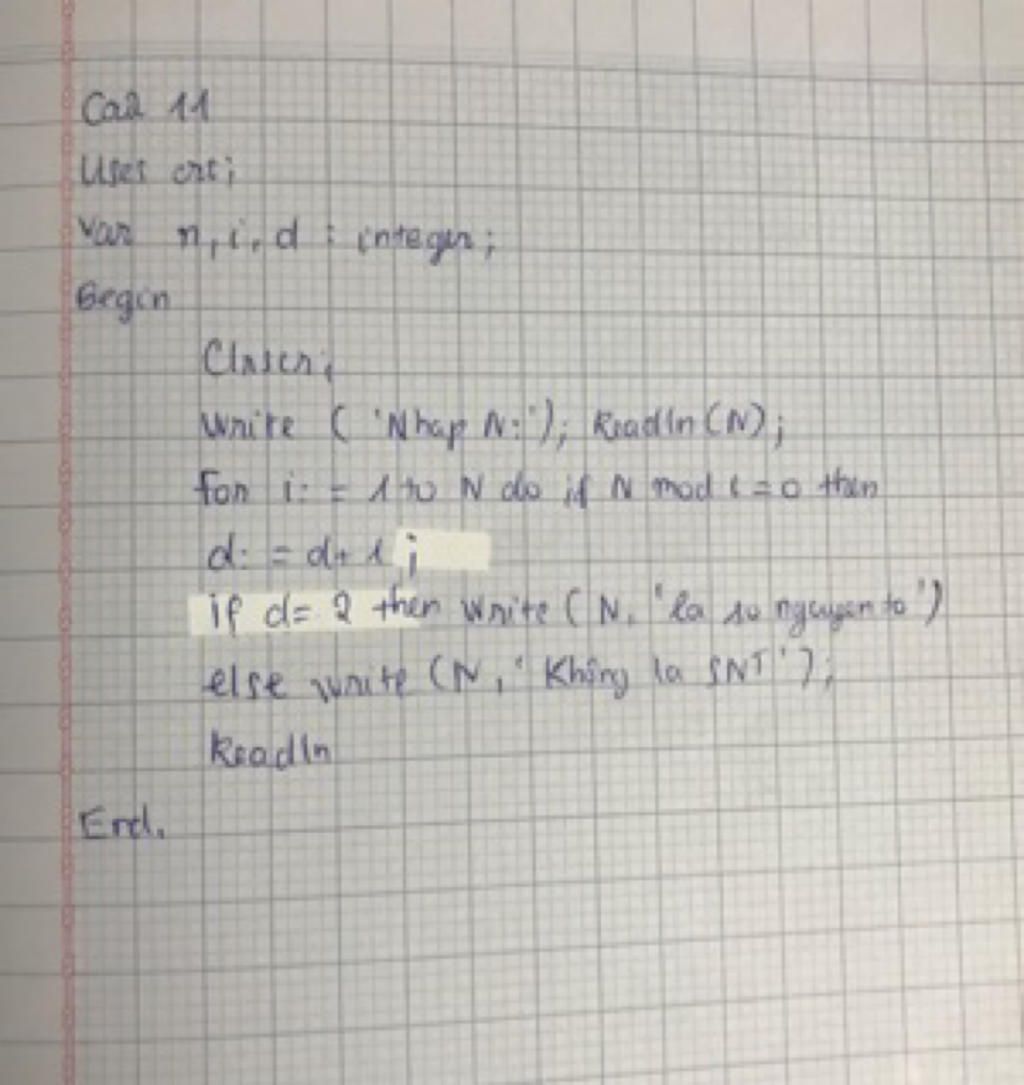 Câu 11
Uses crt;
Var n, i, d : integer;
Begin
Clrscr;
Write ( 'Nhap N:'); Readln (N);
for i: = 1 to N do if N mod i = 0 then
d: = d+ 1 ;
if d= 2 then write ( N, 'la so nguyen to ')
else write (N, ' Không la SNT ');
Readln
End.